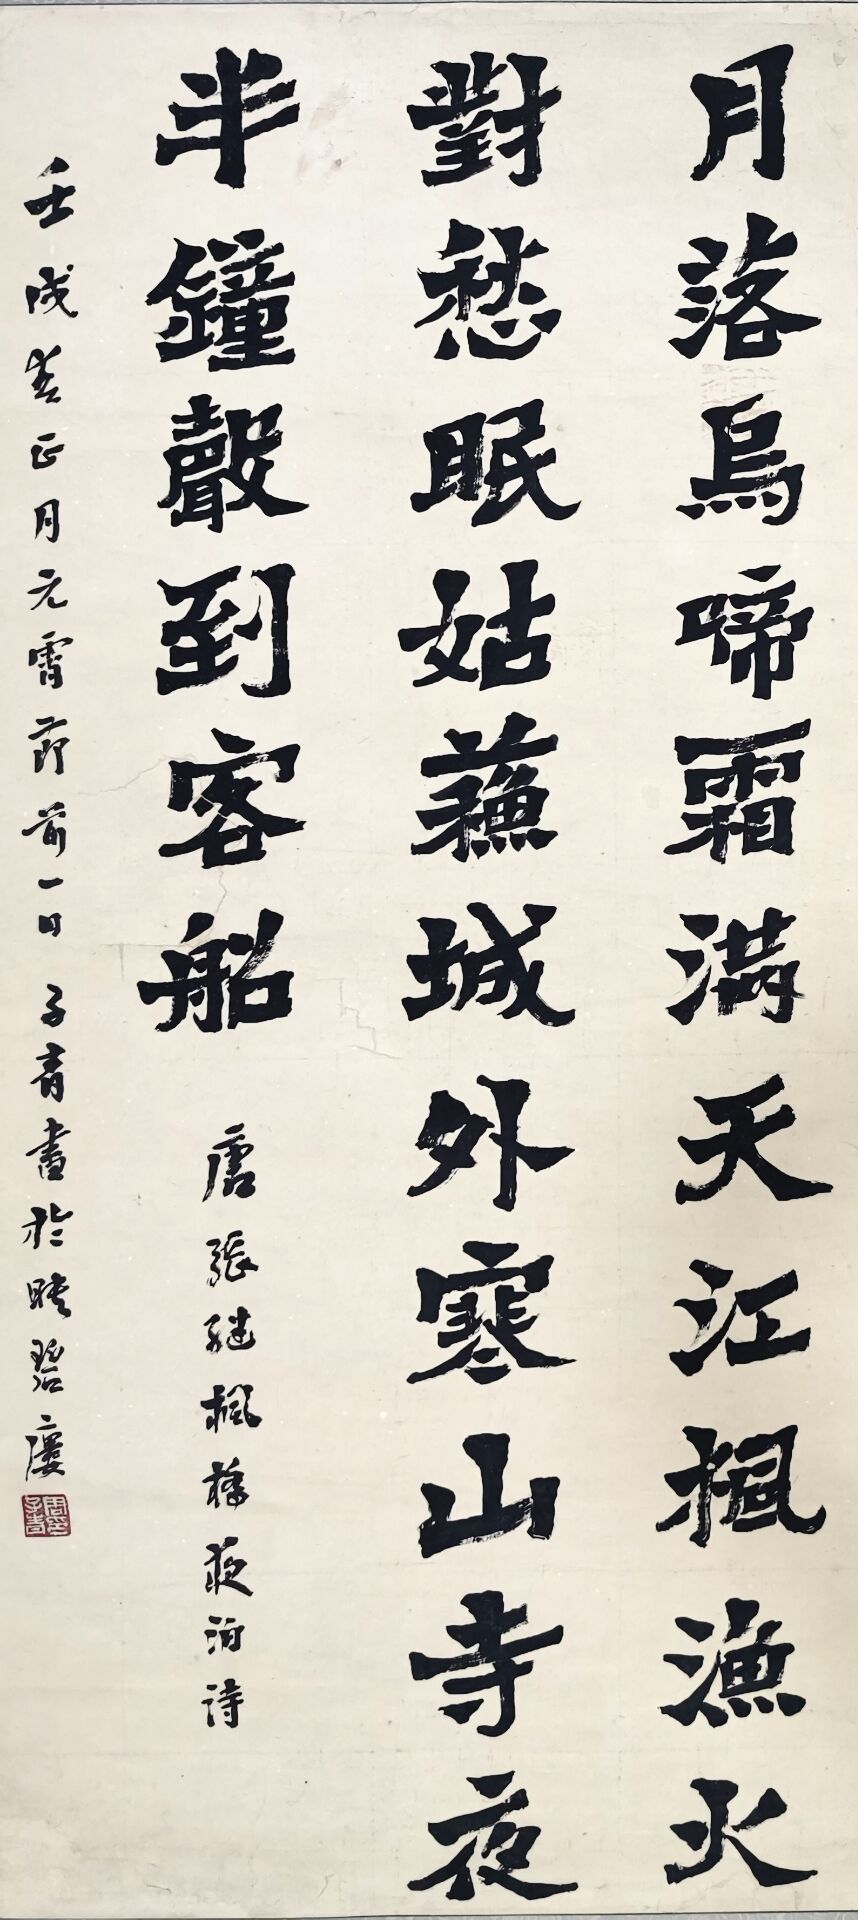 月落烏啼霜滿天江楓漁火
對愁眠姑蘇城外寒山寺夜
半鐘聲到客船
唐張繼楓橋夜泊詩
壬戌春正月元宵節前一日子青書於映碧廔
周子青印